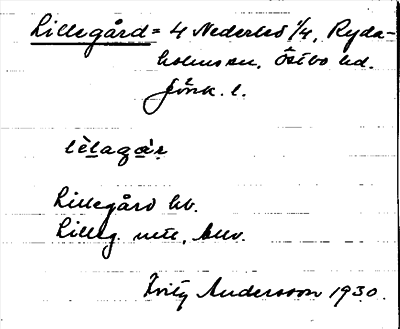 Lillegård = 4 Nederled 1/4, Ryda-
holms sn, Östbo hd.
Jönk. l.
Lillegård hb.
Lilleg. mtl,
Fritz Andersson 1930.